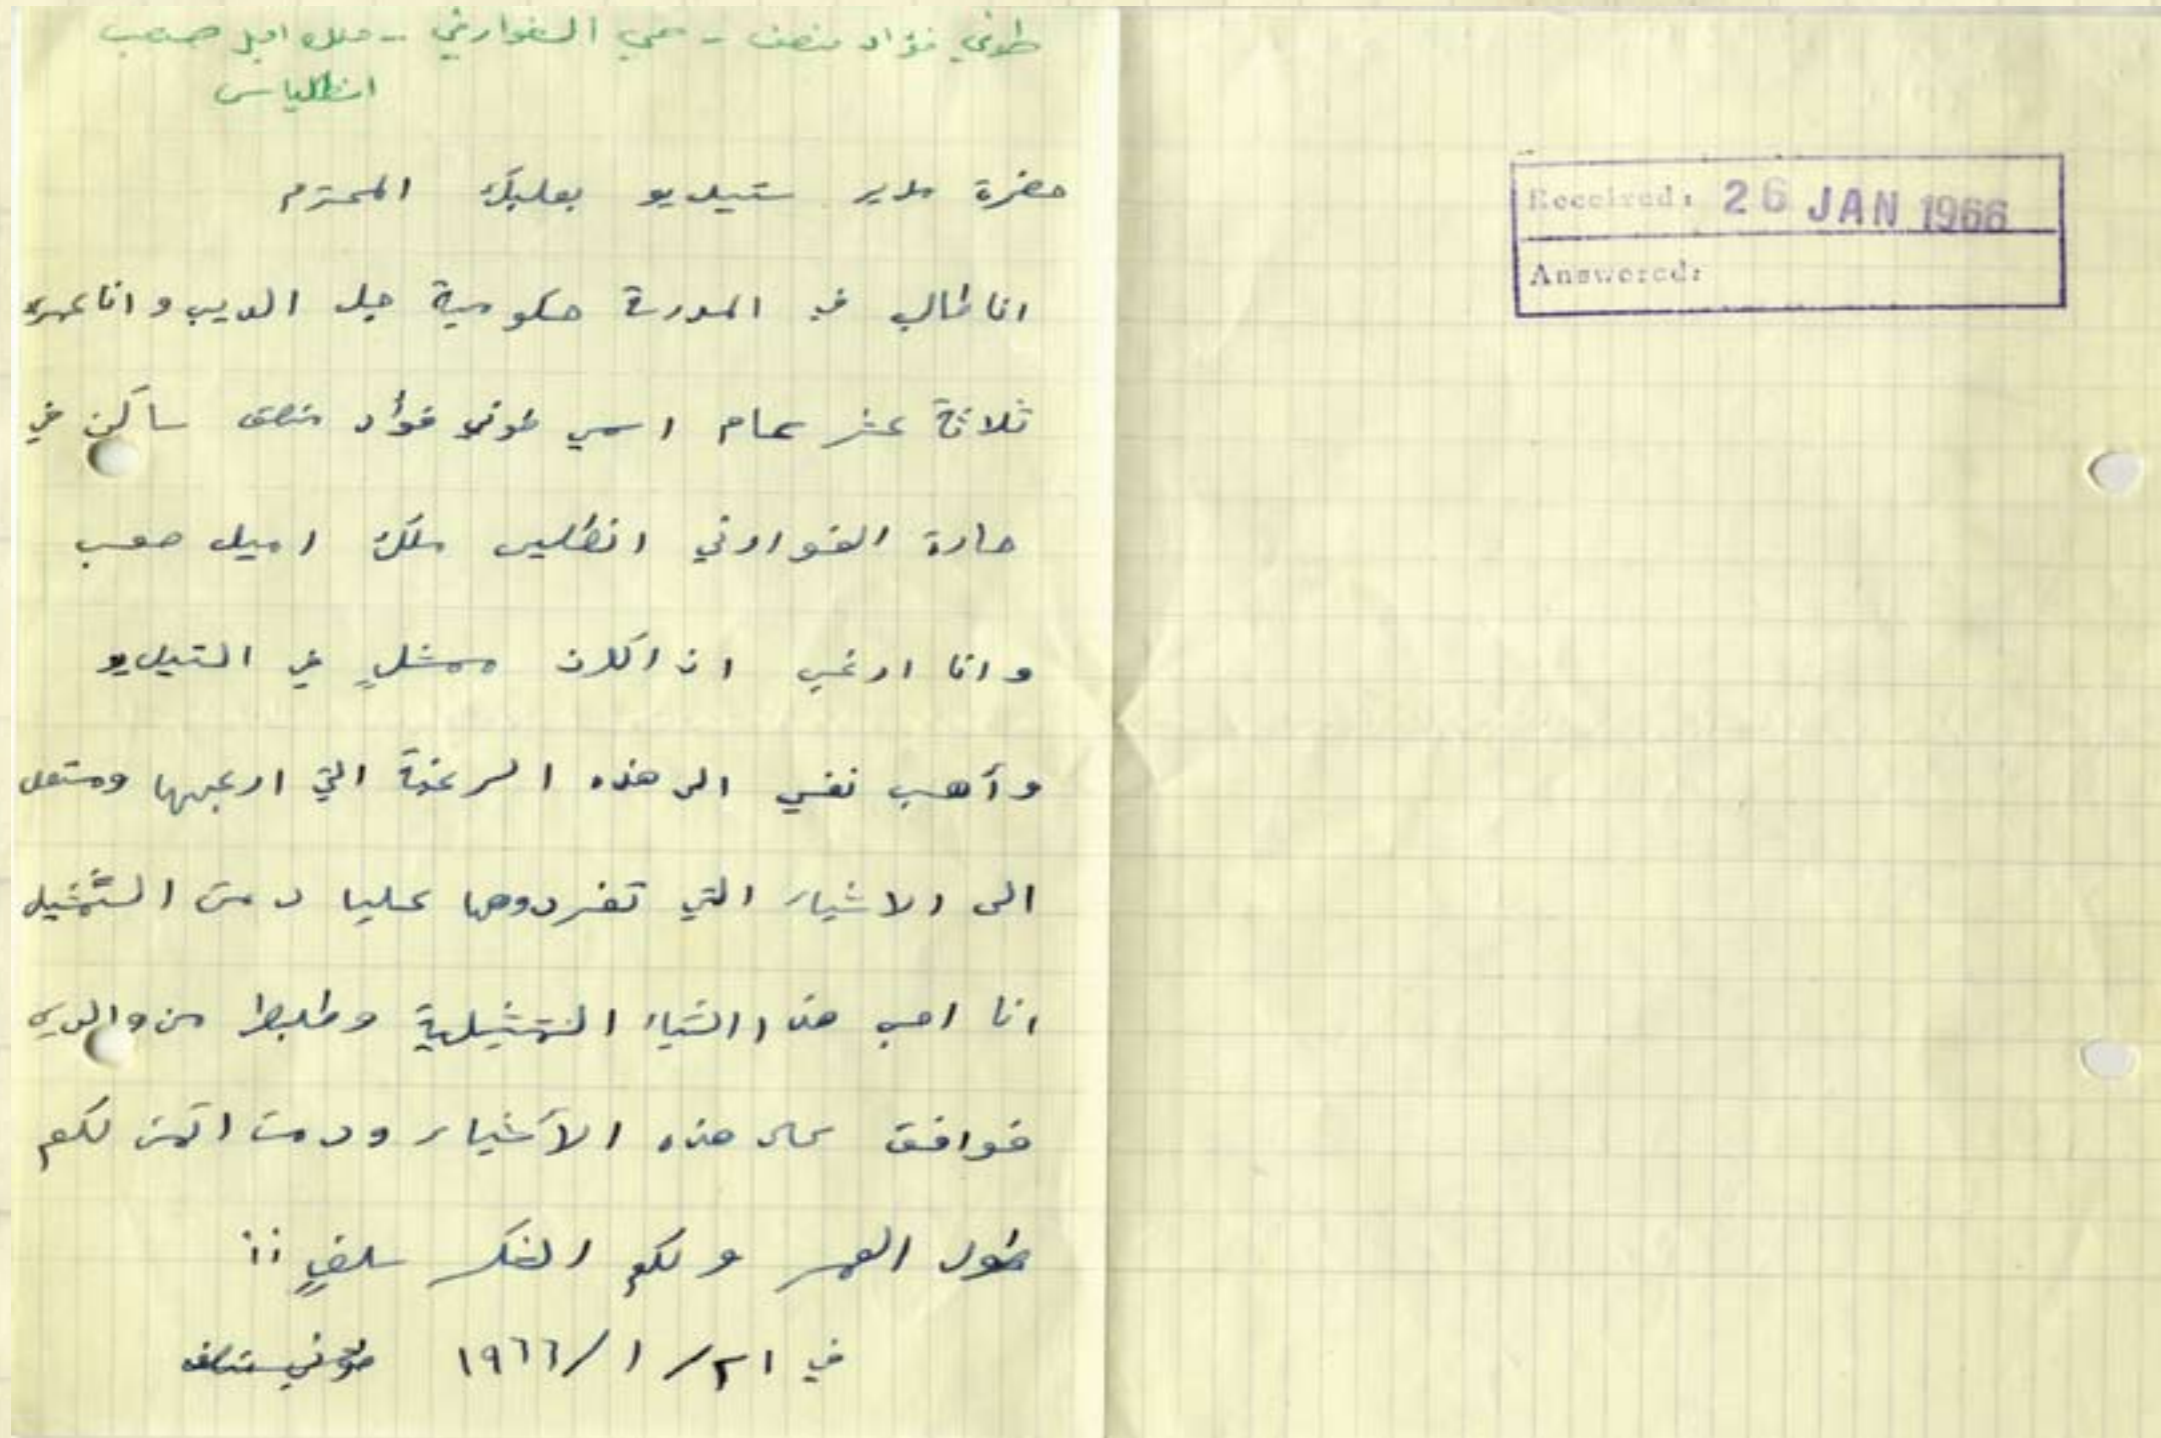 طوني فؤاد منصف - حي الغوارني - ملك اميل صعب
انطلياس
حضرة مدير ستيديو بعلبك المحترم
انا طالب في المدرسة حكومية جل الديب وانا عمري
ثلاثة عشر عام اسمي طوني فؤاد منصف ساكن في
حارة الغوارني انطليس ملك اميل صعب
وانا ارغب ان اكون ممثلٍ في الستيديو
وأهب نفسي الى هذه الرغبة التي ارغبها ومستعد
الى الاشياء التي تفردوها عليا دمت التّمثيل
انا احب هذا الشياء التمثيلية وطلبط من والدي
فوافق على هذه الأشياء ودمت اتمن لكم
طول العمر ولكم الشكر سلفٍ !!
في ٢١/ ١/ ١٩٦٦ طوني منصف
Received: 26 JAN 1966
Answered: